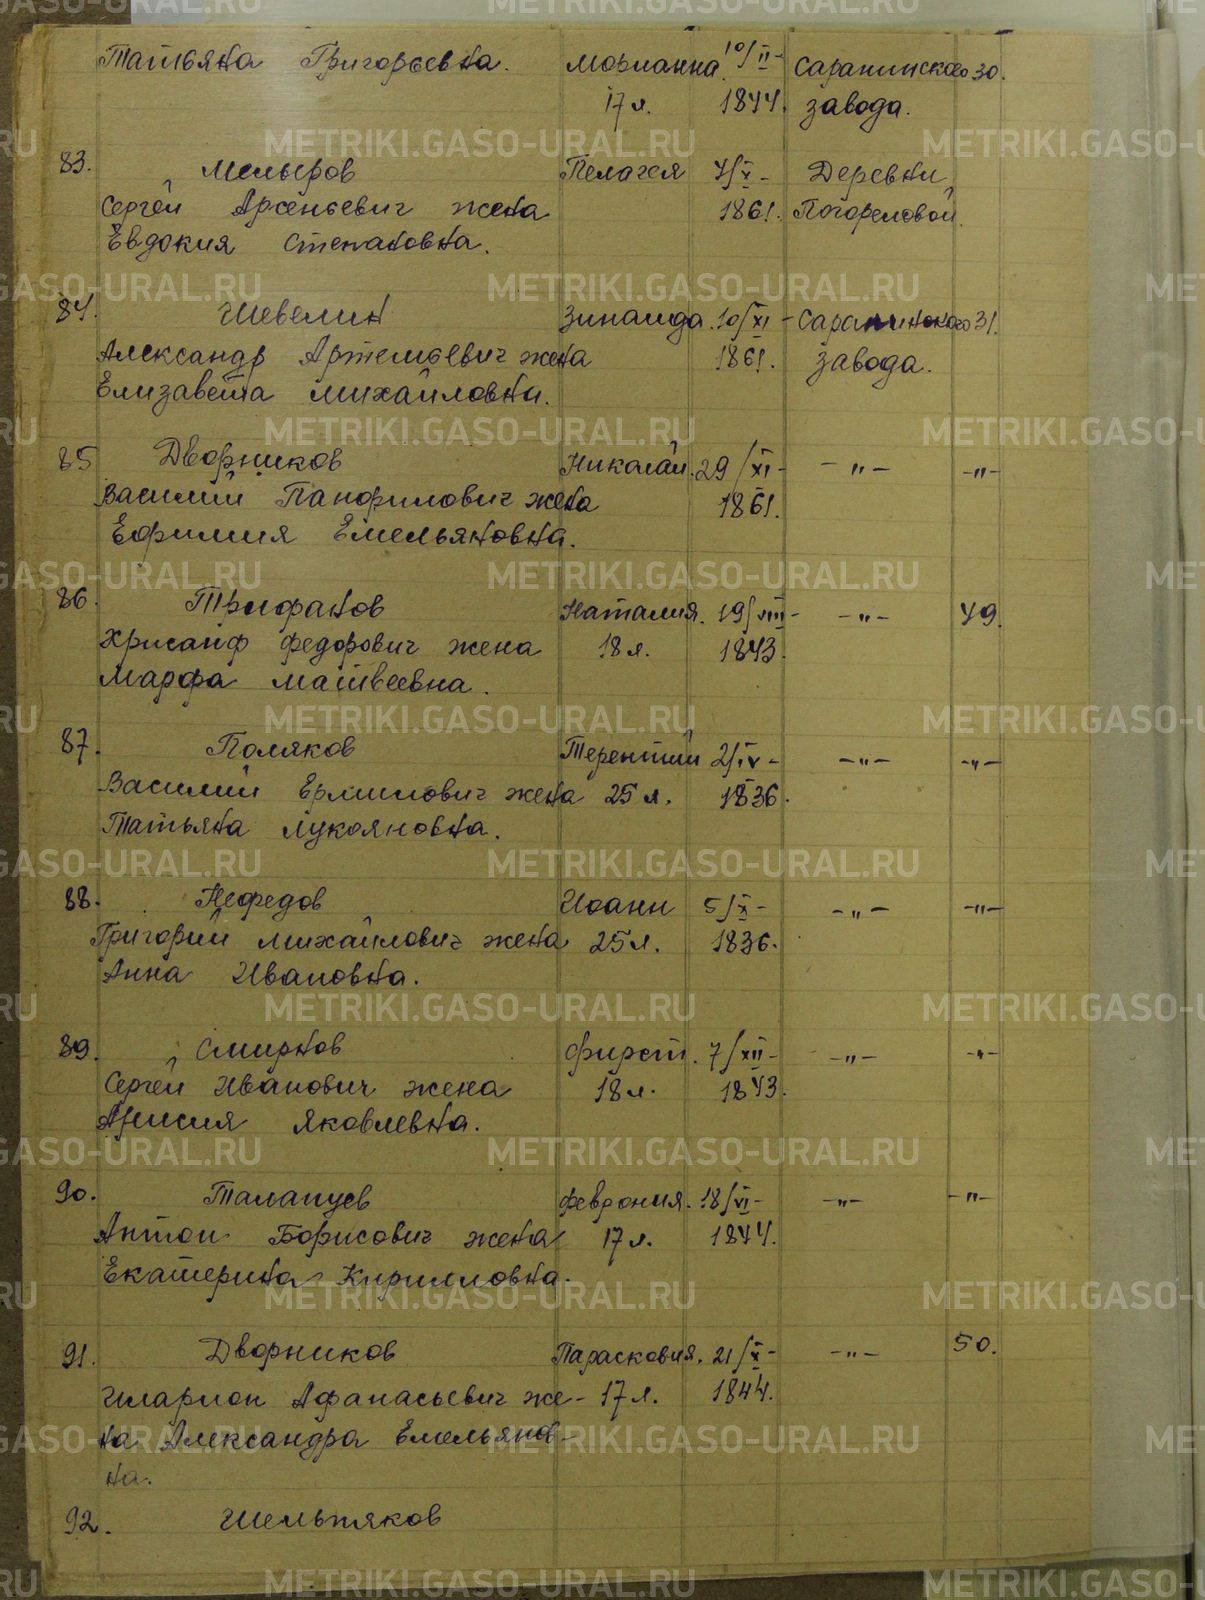 Татьяна Григорьевна.Морианна 10/II- Саранинского 30.
17 л. 1844. завода.
83. Мелыров Пелагея 4/X- Деревни
Сергей Арсеньевич жена 1861. Погореловой.
Евдокия Степановна.
84. Шевелин Зинаида. 10/XI- Саранинского 31.
Александр Артемьевич жена 1861. завода.
Елизавета Михайловна.
85 Дворников Николай. 29/XI- -"- -"-
Василий Панфилович жена 1861.
Ефимия Емельяновна.
86. Трифанов Наталия. 19/VIII- -"- 49.
Хрисанф Федорович жена 18 л. 1843.
Марфа Матвеевна.
87. Поляков Терентий 2/IV- -"- -"-
Василий Ермилович жена 25 л. 1836.
Татьяна Лукояновна.
88. Нефедов Иоанн 5/X- -"- -"-
Григорий Михайлович жена 25 л. 1836.
Анна Ивановна.
89. Смирнов Фирст. 7/XII- -"- -"-
Сергей Иванович жена 18 л. 1843.
Анисия Яковлевна.
90. Талапуев Феврония. 18/VI- -"- -"-
Антон Борисович жена 17 л. 1844.
Екатерина Кирилловна.
91. Дворников Парасковия. 21/X- -"- 50.
Иларион Афанасьевич же- 17 л. 1844.
на Александра Емельянов-
на.
92. Шельпяков
METRIKI.GASO-URAL.RU